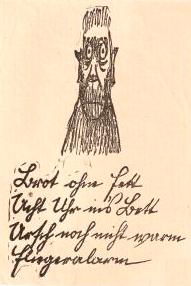 Brot ohne Fett
Acht Uhr ins Bett
Arsch noch nicht warm
Fliegeralarm